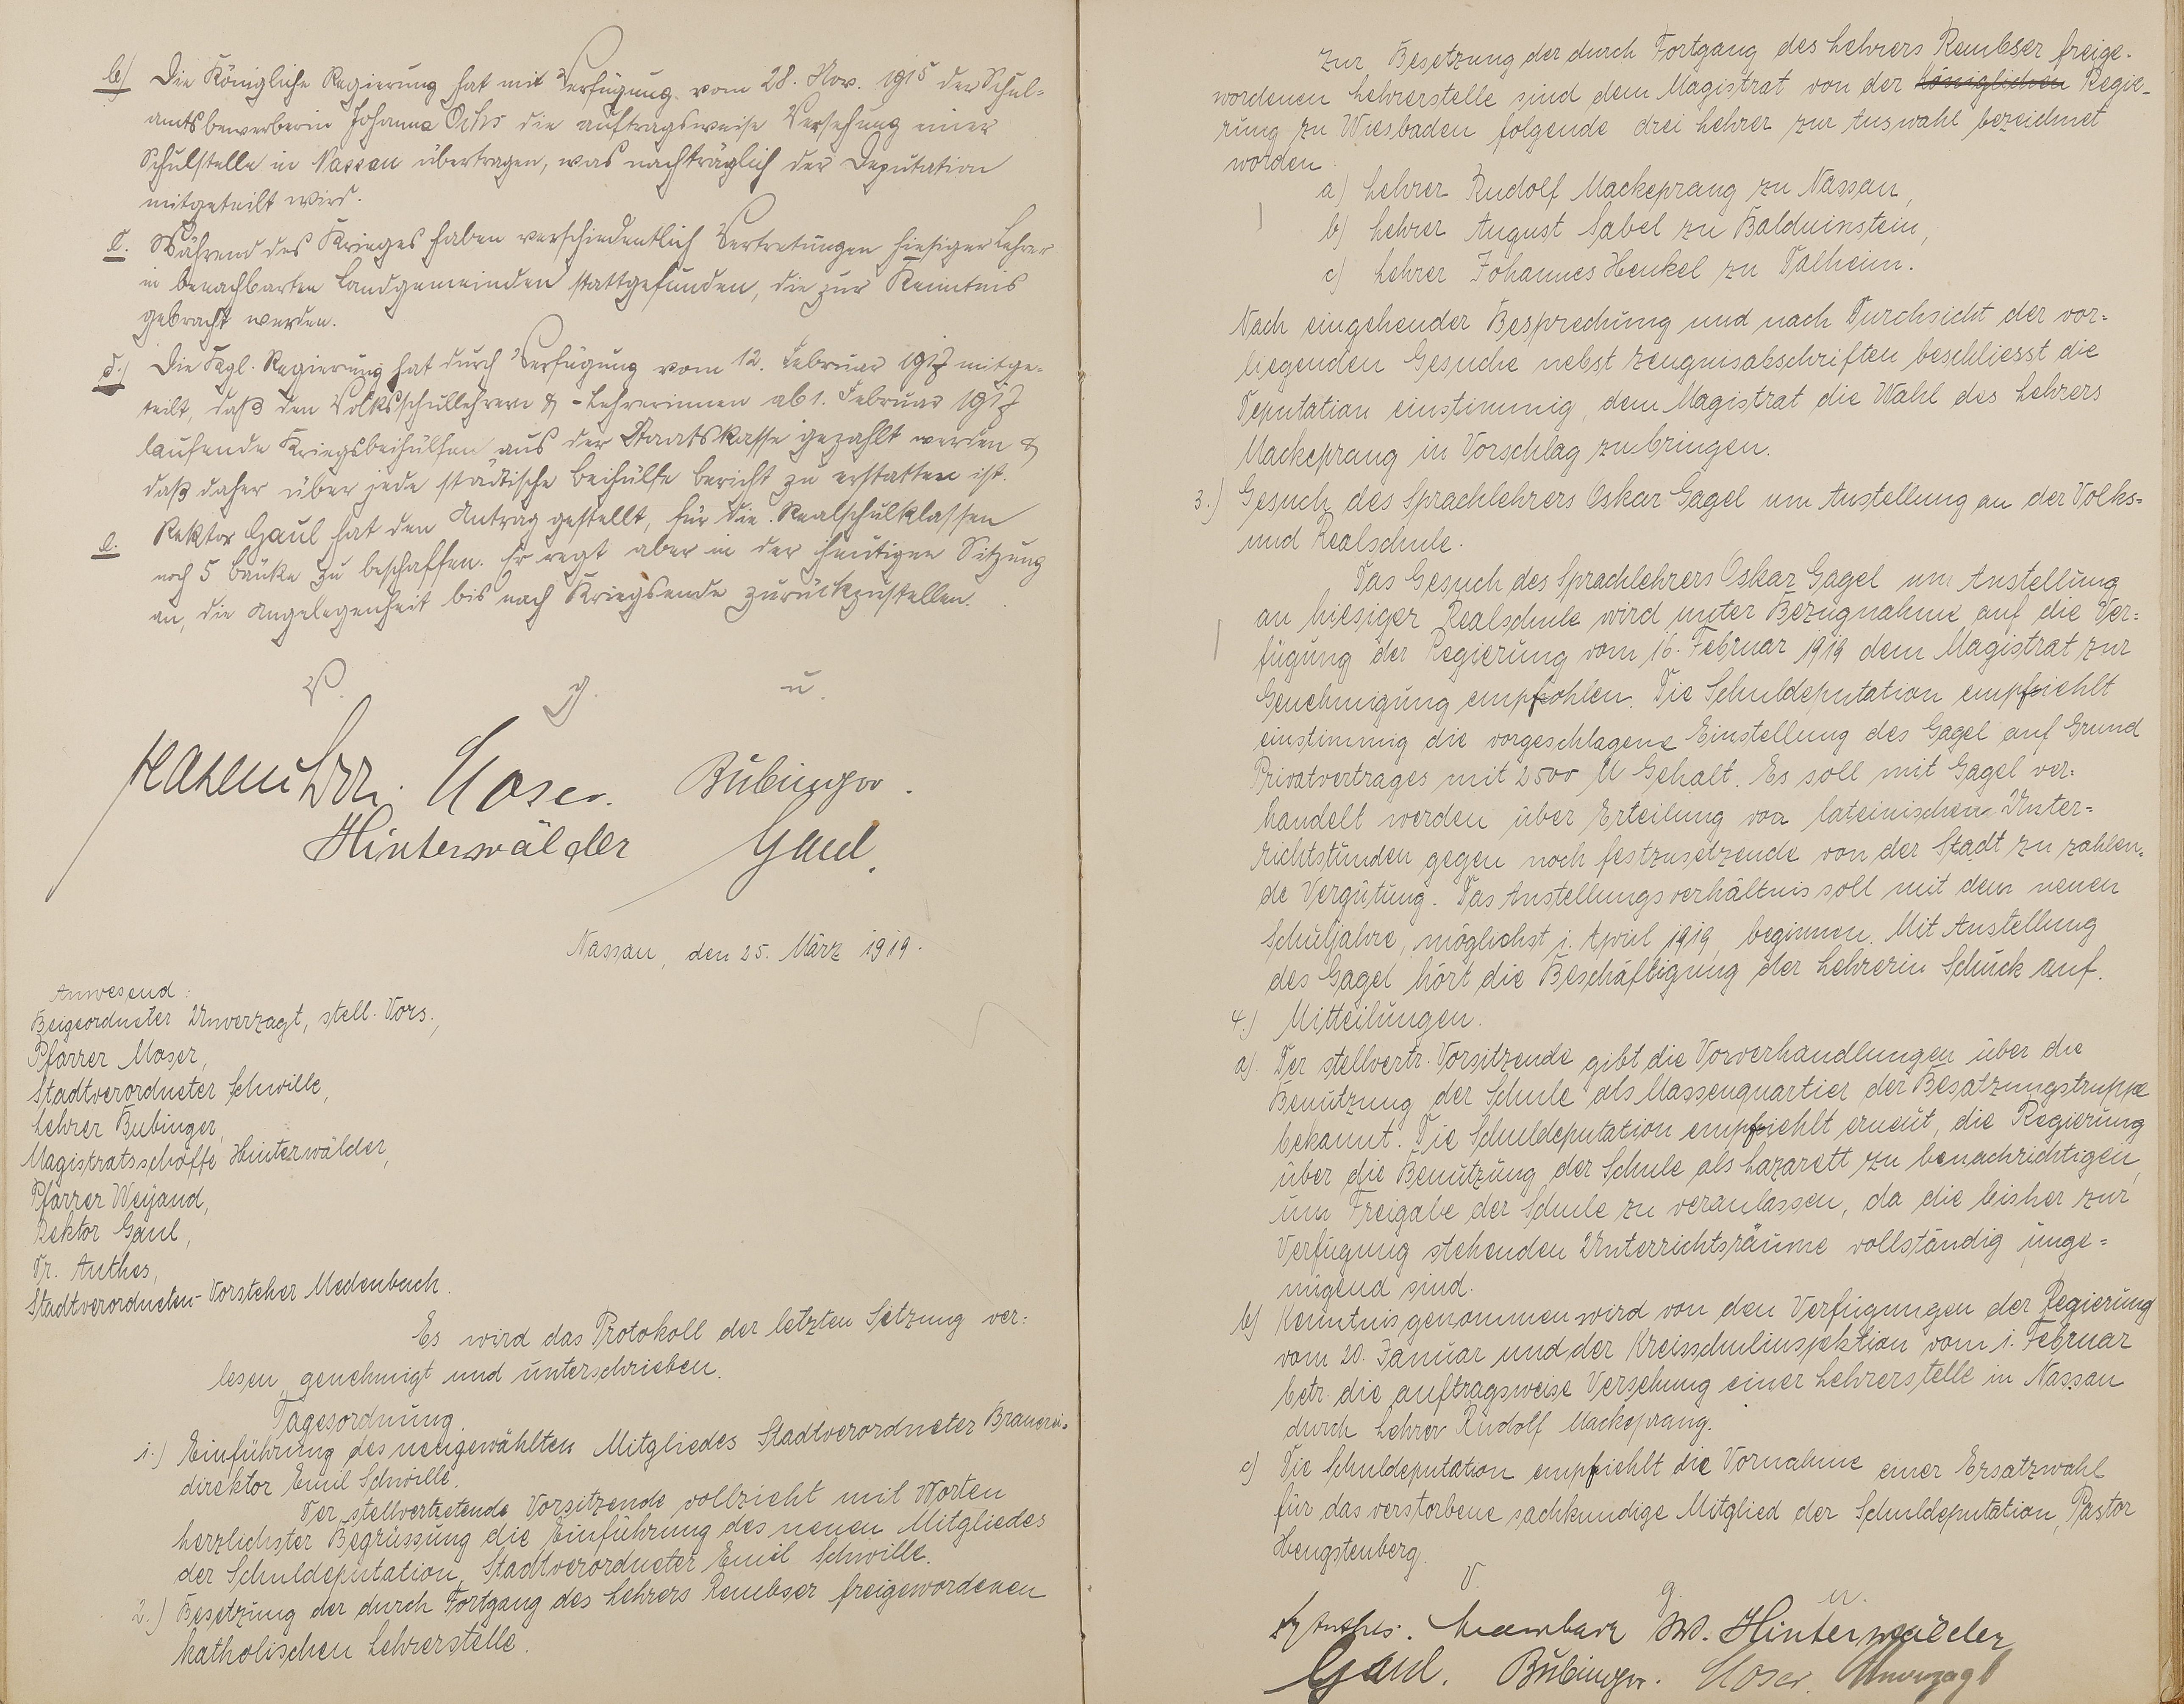 b) Die Königliche Regierung hat mit Verfügung vom 28. Nov. 1915 der Schul-
amtsbewerberin Johanna Ochs die auftragsweise Versehung einer
Schulstelle in Nassau übertragen, was nachträglich der Deputation
mitgeteilt wird.
c. Während des Krieges haben verschiedentlich Vertretungen hiesiger Lehrer
in benachbarten Landgemeinden stattgefunden, die zur Kenntnis
gebracht werden.
d.) Die Kgl. Regierung hat durch Verfügung vom 12. Februar 1917 mitge-
teilt, daß den Volksschullehrern & -Lehrerinnen ab 1. Februar 1917
laufende Kriegsbeihülfen aus der Staatskasse gezahlt werden &
daß daher über jede städtische Beihülfe Bericht zu erstatten ist.
e. Rektor Gaul hat den Antrag gestellt, für die Realschulklassen
noch 5 Bänke zu beschaffen. Er regt aber in der heutigen Sitzung
an, die Angelegenheit bis nach Kriegsende zurückzustellen.
V. g. u.
Moser. Bübinger.
Hinterwälder Gaul.
Nassau, den 25. März 1919.
Anwesend:
Beigeordneter Unverzagt, stell. Vors.,
Pfarrer Moser,
Stadtverordneter Schwille,
Lehrer Bubinger,
Magistratsschöffe Hinterwälder,
Pfarrer Weyand,
Rektor Gaul,
Dr. Anthes,
Stadtverordneten-Vorsteher Medenbach.
Es wird das Protokoll der letzten Sitzung ver-
lesen, genehmigt und unterschrieben.
Tagesordnung.
1.) Einführung des neugewählten Mitgliedes Stadtverordneter Brauerei-
direktor Emil Schwille.
Der stellvertretende Vorsitzende vollzieht mit Worten
herzlichster Begrüssung die Einführung des neuen Mitgliedes
der Schuldeputation, Stadtverordneter Emil Schwille.
2.) Besetzung der durch Fortgang des Lehrers Rembser freigewordenen
katholischen Lehrerstelle.
Zur Besetzung der durch Fortgang des Lehrers Rembser freige-
wordenen Lehrerstelle sind dem Magistrat von der Königlichen Regie-
rung zu Wiesbaden folgende drei Lehrer zur Auswahl bezeichnet
worden
a) Lehrer Rudolf Mackeprang zu Nassau,
b) Lehrer August Sabel zu Balduinstein,
c) Lehrer Johannes Henkel zu Dalheim.
Nach eingehender Besprechung und nach Durchsicht der vor-
liegenden Gesuche nebst Zeugnisabschriften beschliesst die
Deputation einstimmig, dem Magistrat die Wahl des Lehrers
Mackeprang in Vorschlag zu bringen.
3.) Gesuch des Sprachlehrers Oskar Gagel um Anstellung an der Volks-
und Realschule.
Das Gesuch des Sprachlehrers Oskar Gagel um Anstellung
an hiesiger Realschule wird unter Bezugnahme auf die Ver-
fügung der Regierung vom 16. Februar 1919 dem Magistrat zur
Genehmigung empfohlen. Die Schuldeputation empfiehlt
einstimmig die vorgeschlagene Einstellung des Gagel auf Grund
Privatvertrages mit 2500 M Gehalt. Es soll mit Gagel ver-
handelt werden über Erteilung von lateinischen Unter-
richtstunden gegen noch festzusetzende von der Stadt zu zahlen-
de Vergütung. Das Anstellungsverhältnis soll mit dem neuen
Schuljahre, möglichst 1. April 1919, beginnen. Mit Anstellung
des Gagel hört die Beschäftigung der Lehrerin Schuck auf.
4.) Mitteilungen.
a). Der stellvertr. Vorsitzende gibt die Vorverhandlungen über die
Benutzung der Schule als Massenquartier der Besatzungstruppe
bekannt. Die Schuldeputation empfiehlt erneut, die Regierung
über die Benutzung der Schule als Lazarett zu benachrichtigen,
um Freigabe der Schule zu veranlassen, da die bisher zur
Verfügung stehenden Unterrichtsräume vollständig unge-
nügend sind.
b) Kenntnis genommen wird von den Verfügungen der Regierung
vom 20. Januar und der Kreisschulinspektion vom 1. Februar
betr. die auftragsweise Versehung einer Lehrerstelle in Nassau
durch Lehrer Rudolf Mackeprang.
c) Die Schuldeputation empfiehlt die Vornahme einer Ersatzwahl
für das verstorbene sachkundige Mitglied der Schuldeputation, Pastor
Hengstenberg.
V. g. u.
Dr Anthes. Medenbach Hinterwälder
Gaul. Bübinger. Moser. Unverzagt